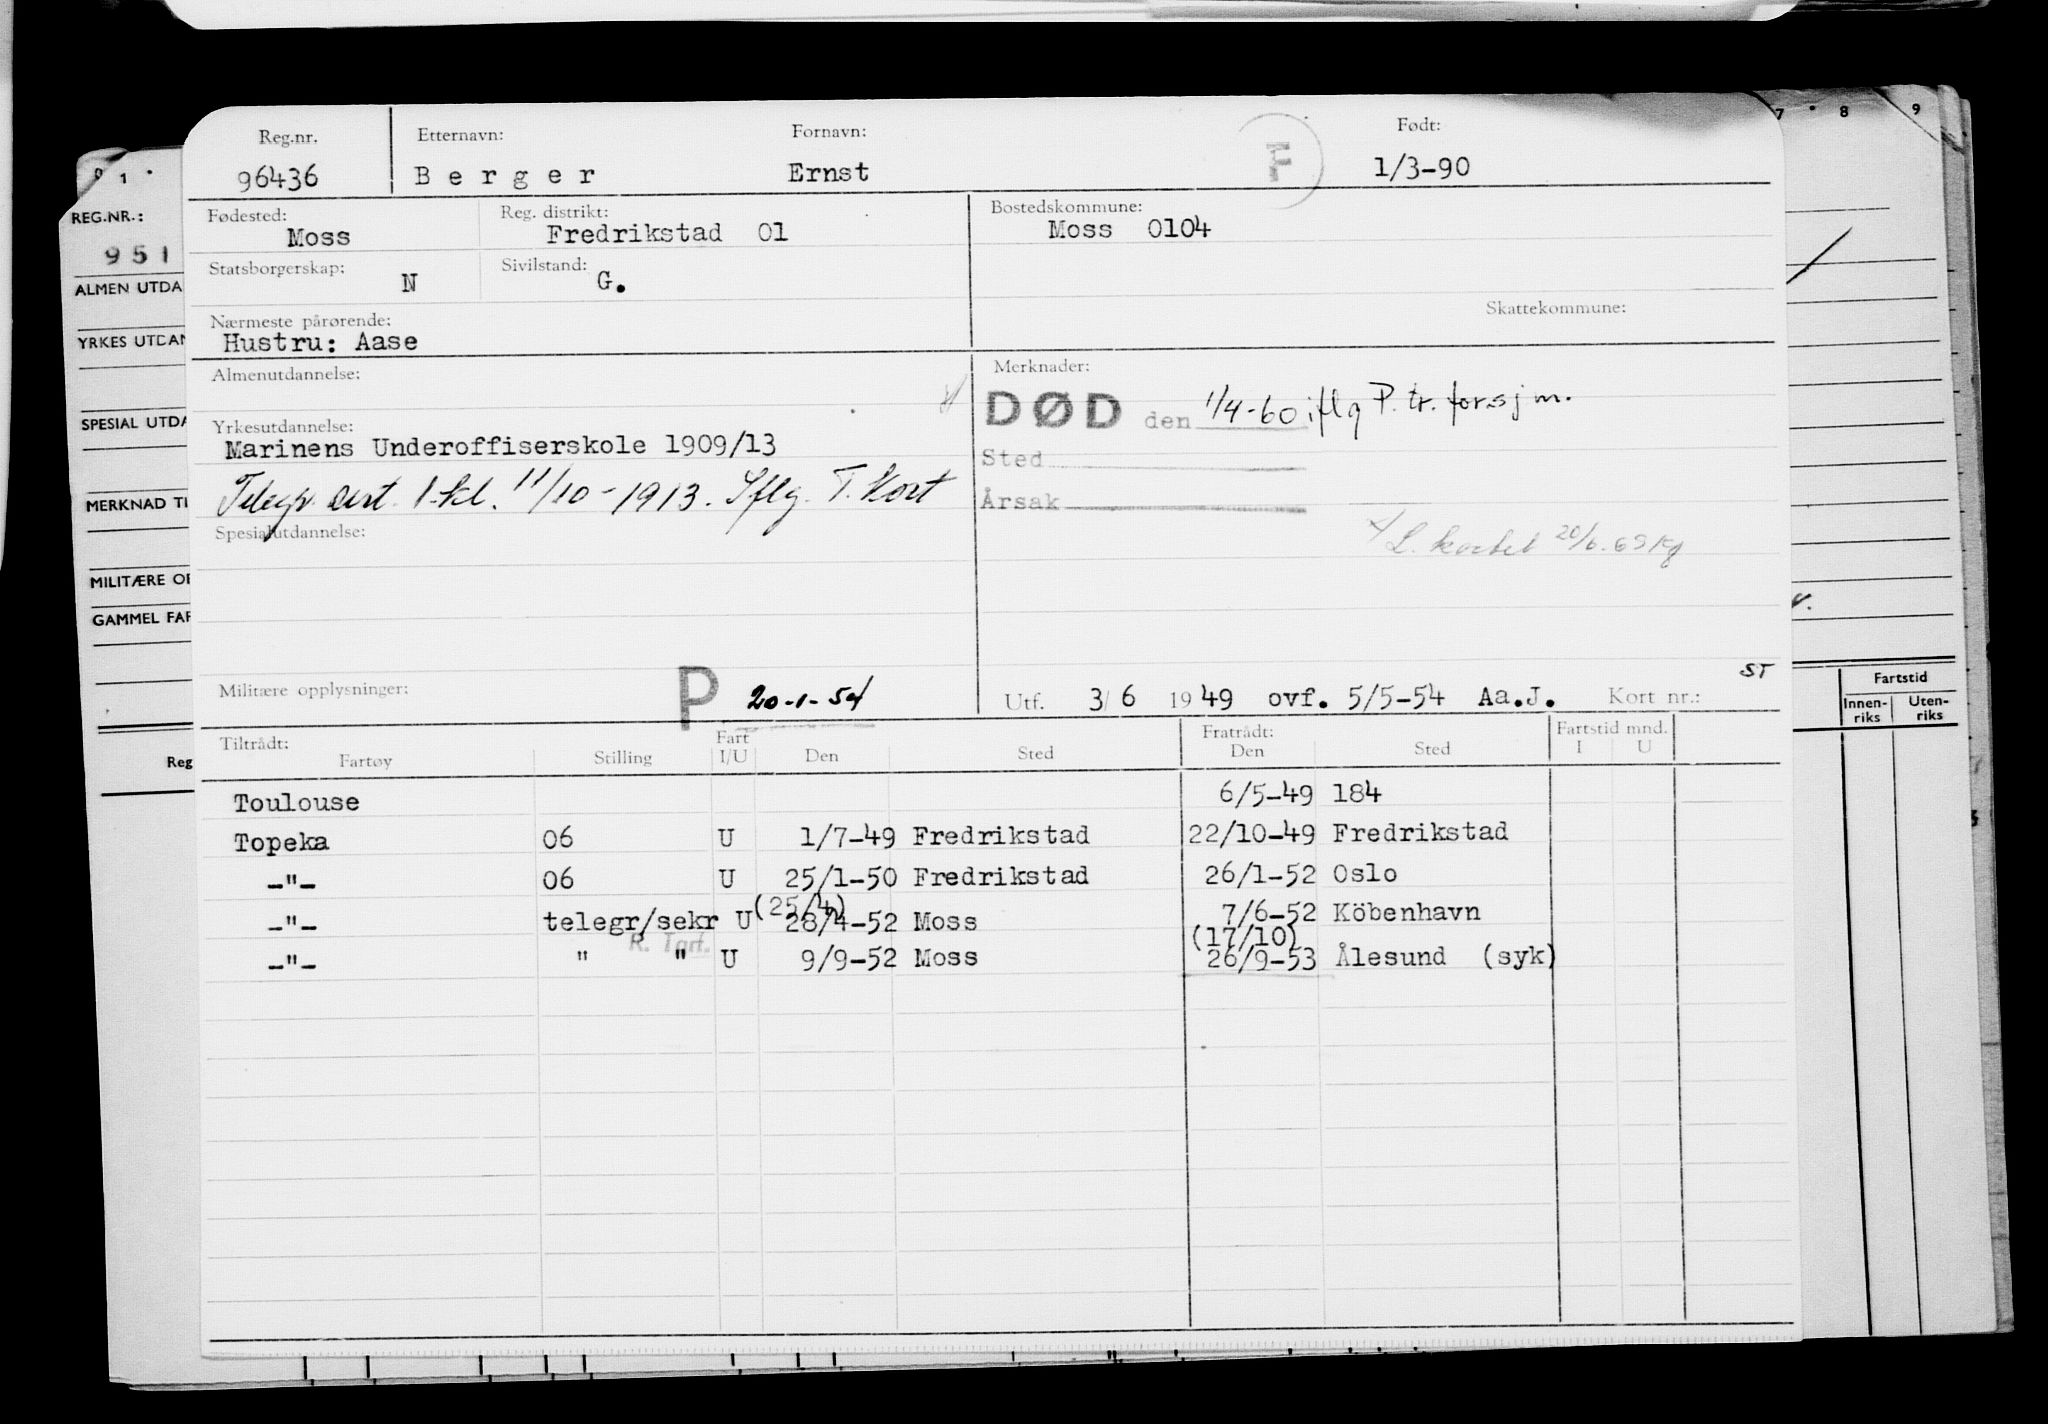 Reg.nr. Etternavn: Fornavn: Født:
96436 Berger Ernst F 1/3-90
Fødested: Reg. distrikt: Bostedskommune:
Moss Fredrikstad 01 Moss 0104
Statsborgerskap: Sivilstand:
N G.
Skattekommune:
Nærmeste pårørende:
Hustru: Aase
Almenutdannelse: Merknader:
DØD den 1/4-60 iflg P. tr. for sjm.
Yrkesutdannelse:
Marinens Underoffiserskole 1909/13
Sted
Telegr. sert. 1.kl. 11/10-1913. Iflg. T. Kort
Årsak
Spesialutdannelse:
L. kortet 20/6.69 Kg
Militære opplysninger: P 20-1-54 Utf. 3/6 1949 ovf. 5/5-54 Aa.J. Kort nr.: ST
Tiltrådt: Fratrådt: Fartstid mnd.
Fartøy Stilling Fart I/U Den Sted Den Sted I U
Toulouse 6/5-49 184
Topeka 06 U 1/7-49 Fredrikstad 22/10-49 Fredrikstad
-"- 06 U 25/1-50 Fredrikstad 26/1-52 Oslo
(25/4)
-"- telegr/sekr U 28/4-52 Moss 7/6-52 Köbenhavn
R. Tgrf. (17/10)
-"- " " U 9/9-52 Moss 26/9-53 Ålesund (syk)
0 1 7 8 9
REG.NR.:
951
ALMEN UTDA
YRKES UTDAN
SPESIAL UTDA
MERKNAD TI
MILITÆRE OP
GAMMEL FAR
Reg
Fartstid
Innen-riks Uten-riks